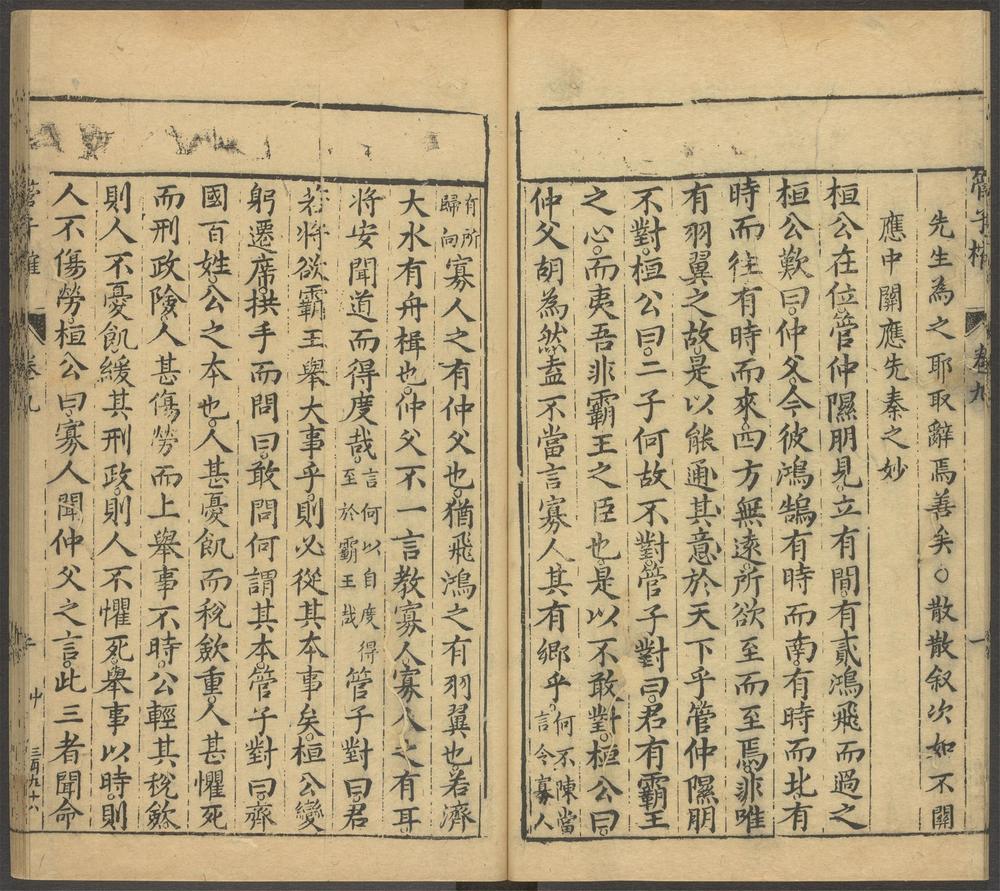 先生為之耶取辭焉善矣○散散叙次如不關
應中關應先秦之妙
桓公在位管仲隰朋見立有間有貳鴻飛而過之
桓公歎曰仲父今彼鴻鵠有時而南有時而北有
時而徃有時而來四方無遠所欲至而至焉非唯
有羽翼之故是以能通其意於天下乎管仲隰朋
不對桓公曰二子何故不對管子對曰君有霸王
之心而夷吾非霸王之臣也是以不敢對桓公曰
仲父胡為然盍不當言寡人其有鄉乎何不陳當言令寡人
有所歸向寡人之有仲父也猶飛鴻之有羽翼也若濟
大水有舟楫也仲父不一言教寡人寡人之有耳
將安聞道而得度哉言何以自度得至於霸王哉管子對曰君
若將欲霸王舉大事乎則必從其本事矣桓公變
躬遷席拱手而問曰敢問何謂其本管子對曰齊
國百姓公之本也人甚憂飢而稅歛重人甚懼死
而刑政險人甚傷勞而上舉事不時公輕其稅歛
則人不憂飢緩其刑政則人不懼死舉事以時則
人不傷勞桓公曰寡人聞仲父之言此三者聞命
管子榷
卷九